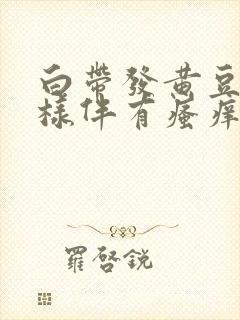 白帶發黃豆
樣伴有瘙痒
羅啓銳